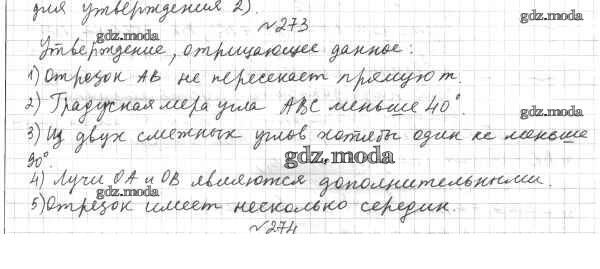 для утверждения 2).
№273
gdz.moda
gdz.moda
Утверждение, отрицающее данное:
1) Отрезок AB не пересекает прямую m.
2) Градусная мера угла ABC меньше 40°.
gdz.moda
gdz.moda
3) Из двух смежных углов хотябы один не меньше
90°.
gdz.moda
4) Лучи OA и OB являются дополнительными.
gdz.moda
gdz.moda
5) Отрезок имеет несколько середин.
№274